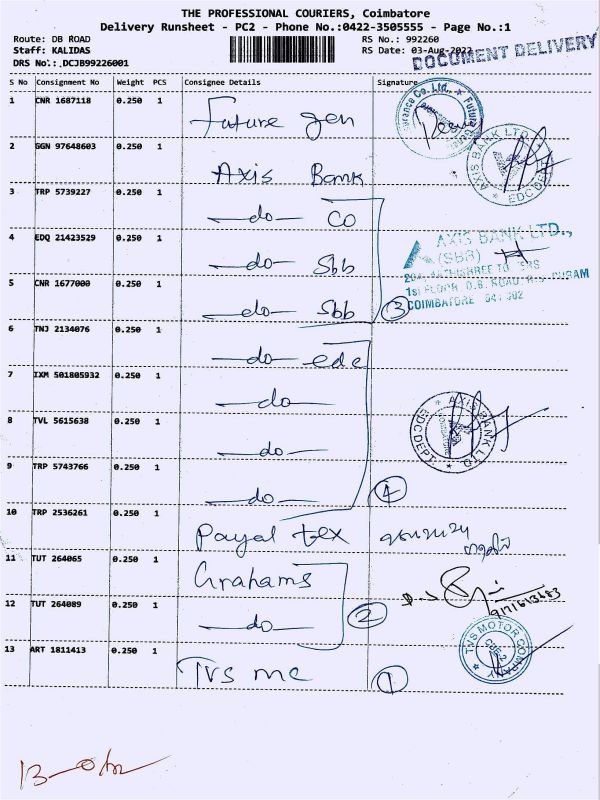 THE PROFESSIONAL COURIERS, Coimbatore
Delivery Runsheet - PC2 - Phone No.:0422-3505555 - Page No.:1
Route: DB ROAD
Staff: KALIDAS
DRS No.: DCJB99226001
RS No.: 992260
RS Date: 03-Aug-2022
DOCUMENT DELIVERY
S No Consignment No Weight PCS Consignee Details Signature
1 CNR 1687118 0.250 1 Future gen
2 GGN 97648603 0.250 1 Axis Bank
3 TRP 5739227 0.250 1 —do— CO
4 EDQ 21423529 0.250 1 —do— Sbb
5 CNR 1677000 0.250 1 —do— Sbb 3
6 TNJ 2134076 0.250 1 —do— edc
7 IXM 501805932 0.250 1 —do—
8 TVL 5615638 0.250 1 —do—
9 TRP 5743766 0.250 1 —do— 4
10 TRP 2536261 0.250 1 Payal tex
11 TUT 264065 0.250 1 Grahams
12 TUT 264089 0.250 1 —do— 2
13 ART 1811413 0.250 1 TVS mc 1
AXIS BANK LTD
EDC
AXIS BANK LTD.,
(SBB)
1st FLOOR, D.B. ROAD, R.S. PURAM
COIMBATORE 641 002
AXIS BANK LTD
EDC DEPT
TVS MOTOR COMPANY
CBE-2